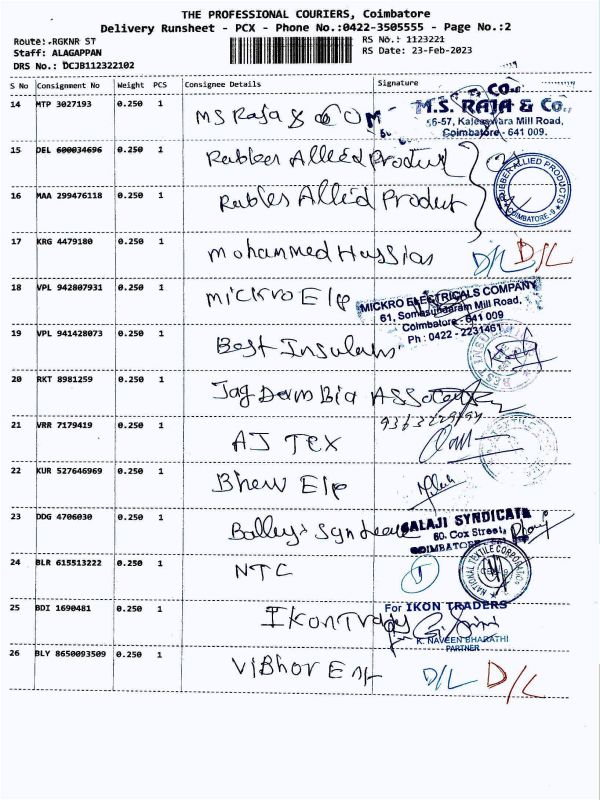 THE PROFESSIONAL COURIERS, Coimbatore
Delivery Runsheet - PCX - Phone No.:0422-3505555 - Page No.:2
Route:-RGKNR ST
RS No.: 1123221
Staff: ALAGAPPAN
RS Date: 23-Feb-2023
DRS No.: DCJB112322102
S No Consignment No Weight PCS Consignee Details Signature
14 MTP 3027193 0.250 1 MS Raja & CO
M.S. RAJA & Co.,
56-57, Kaleeswara Mill Road,
Coimbatore - 641 009.
15 DEL 600034696 0.250 1 Rubber Allied Product
16 MAA 299476118 0.250 1 Rubber Allied Product
RUBBER ALLIED PRODUCTS
COIMBATORE-9
17 KRG 4479180 0.250 1 Mohammed Hussias D/L D/L
18 VPL 942807931 0.250 1 Mickro Elp
MICKRO ELECTRICALS COMPANY
61, Somasundaram Mill Road,
Coimbatore - 641 009
Ph : 0422 - 2231461
19 VPL 941428073 0.250 1 Best Insulans
BEST
20 RKT 8981259 0.250 1 Jag
21 VRR 7179419 0.250 1 AJ TEX
22 KUR 527646969 0.250 1 Bhew Elp
23 DDG 4706030 0.250 1
BALAJI SYNDICATE
60, Cox Street,
COIMBATORE
24 BLR 615513222 0.250 1 NTC
NATIONAL TEXTILE CORPORATION
25 BDI 1690481 0.250 1 Ikon Tradg
For IKON TRADERS
K. NAVEEN BHARATHI
PARTNER
26 BLY 8650093509 0.250 1 Vibhor Ent D/L D/L